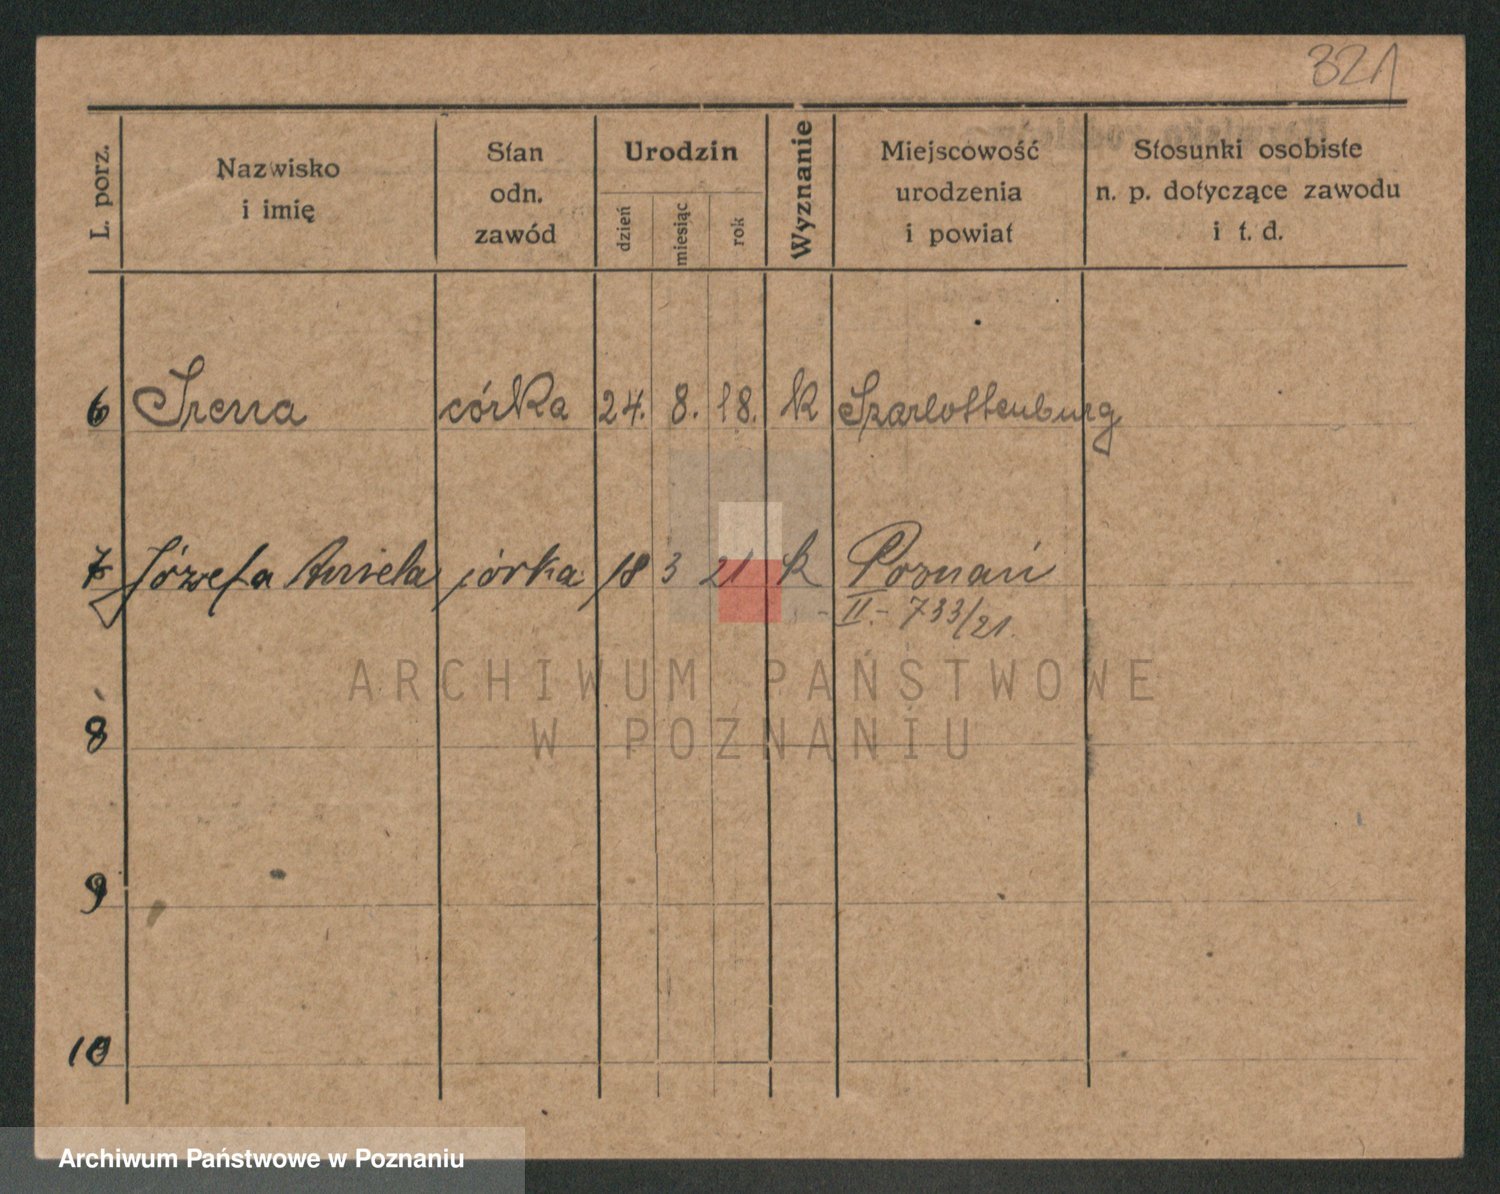 321
L. porz.
Nazwisko
i imię
Stan
odn.
zawód
Urodzin
dzień
miesiąc
rok
Wyznanie
Miejscowość
urodzenia
i powiat
Stosunki osobiste
n. p. dotyczące zawodu
i t. d.
6 Irena córka 24. 8. 18. k Szarlottenburg
7 Józefa Aniela córka 18 3 21 k Poznań
- II. - 733/21.
8
9
10
ARCHIWUM PAŃSTWOWE
W POZNANIU
Archiwum Państwowe w Poznaniu